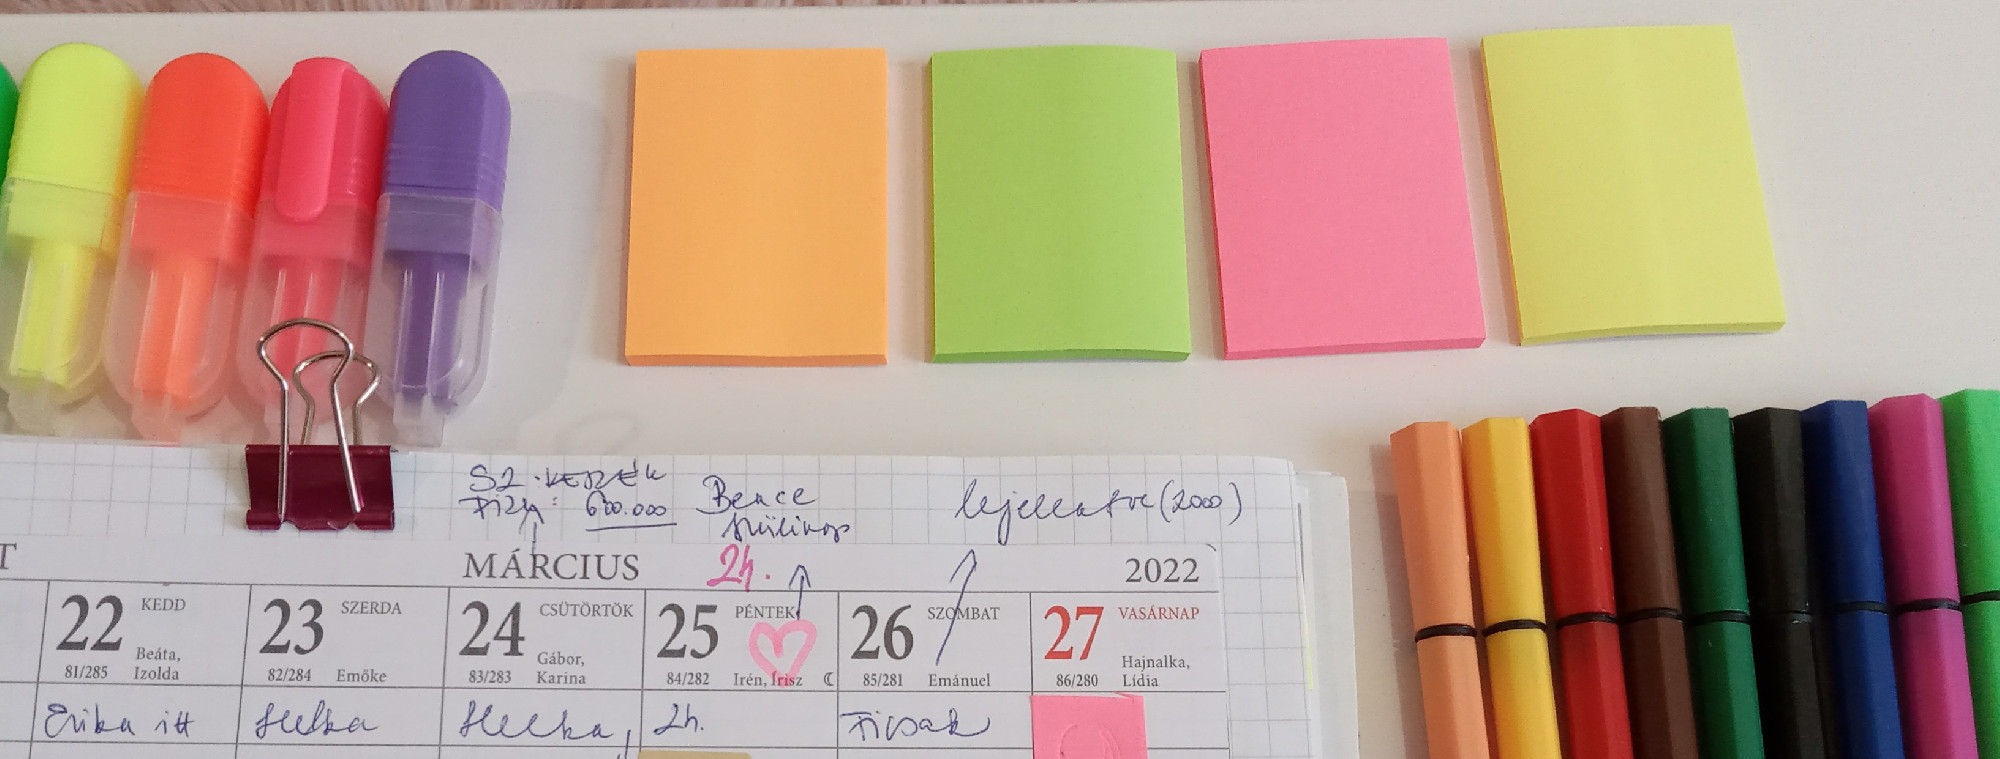 Bence
lejelentve (2000)
600.000
T
MÁRCIUS
2h.
2022
22 KEDD
Beáta,
81/285 Izolda
23 SZERDA
82/284 Emőke
24 CSÜTÖRTÖK
Gábor,
83/283 Karina
25 PÉNTEK
84/282 Irén, Írisz
26 SZOMBAT
85/281 Emánuel
27 VASÁRNAP
Hajnalka,
86/280 Lídia
Erika itt
Helka
Helka,
2h.